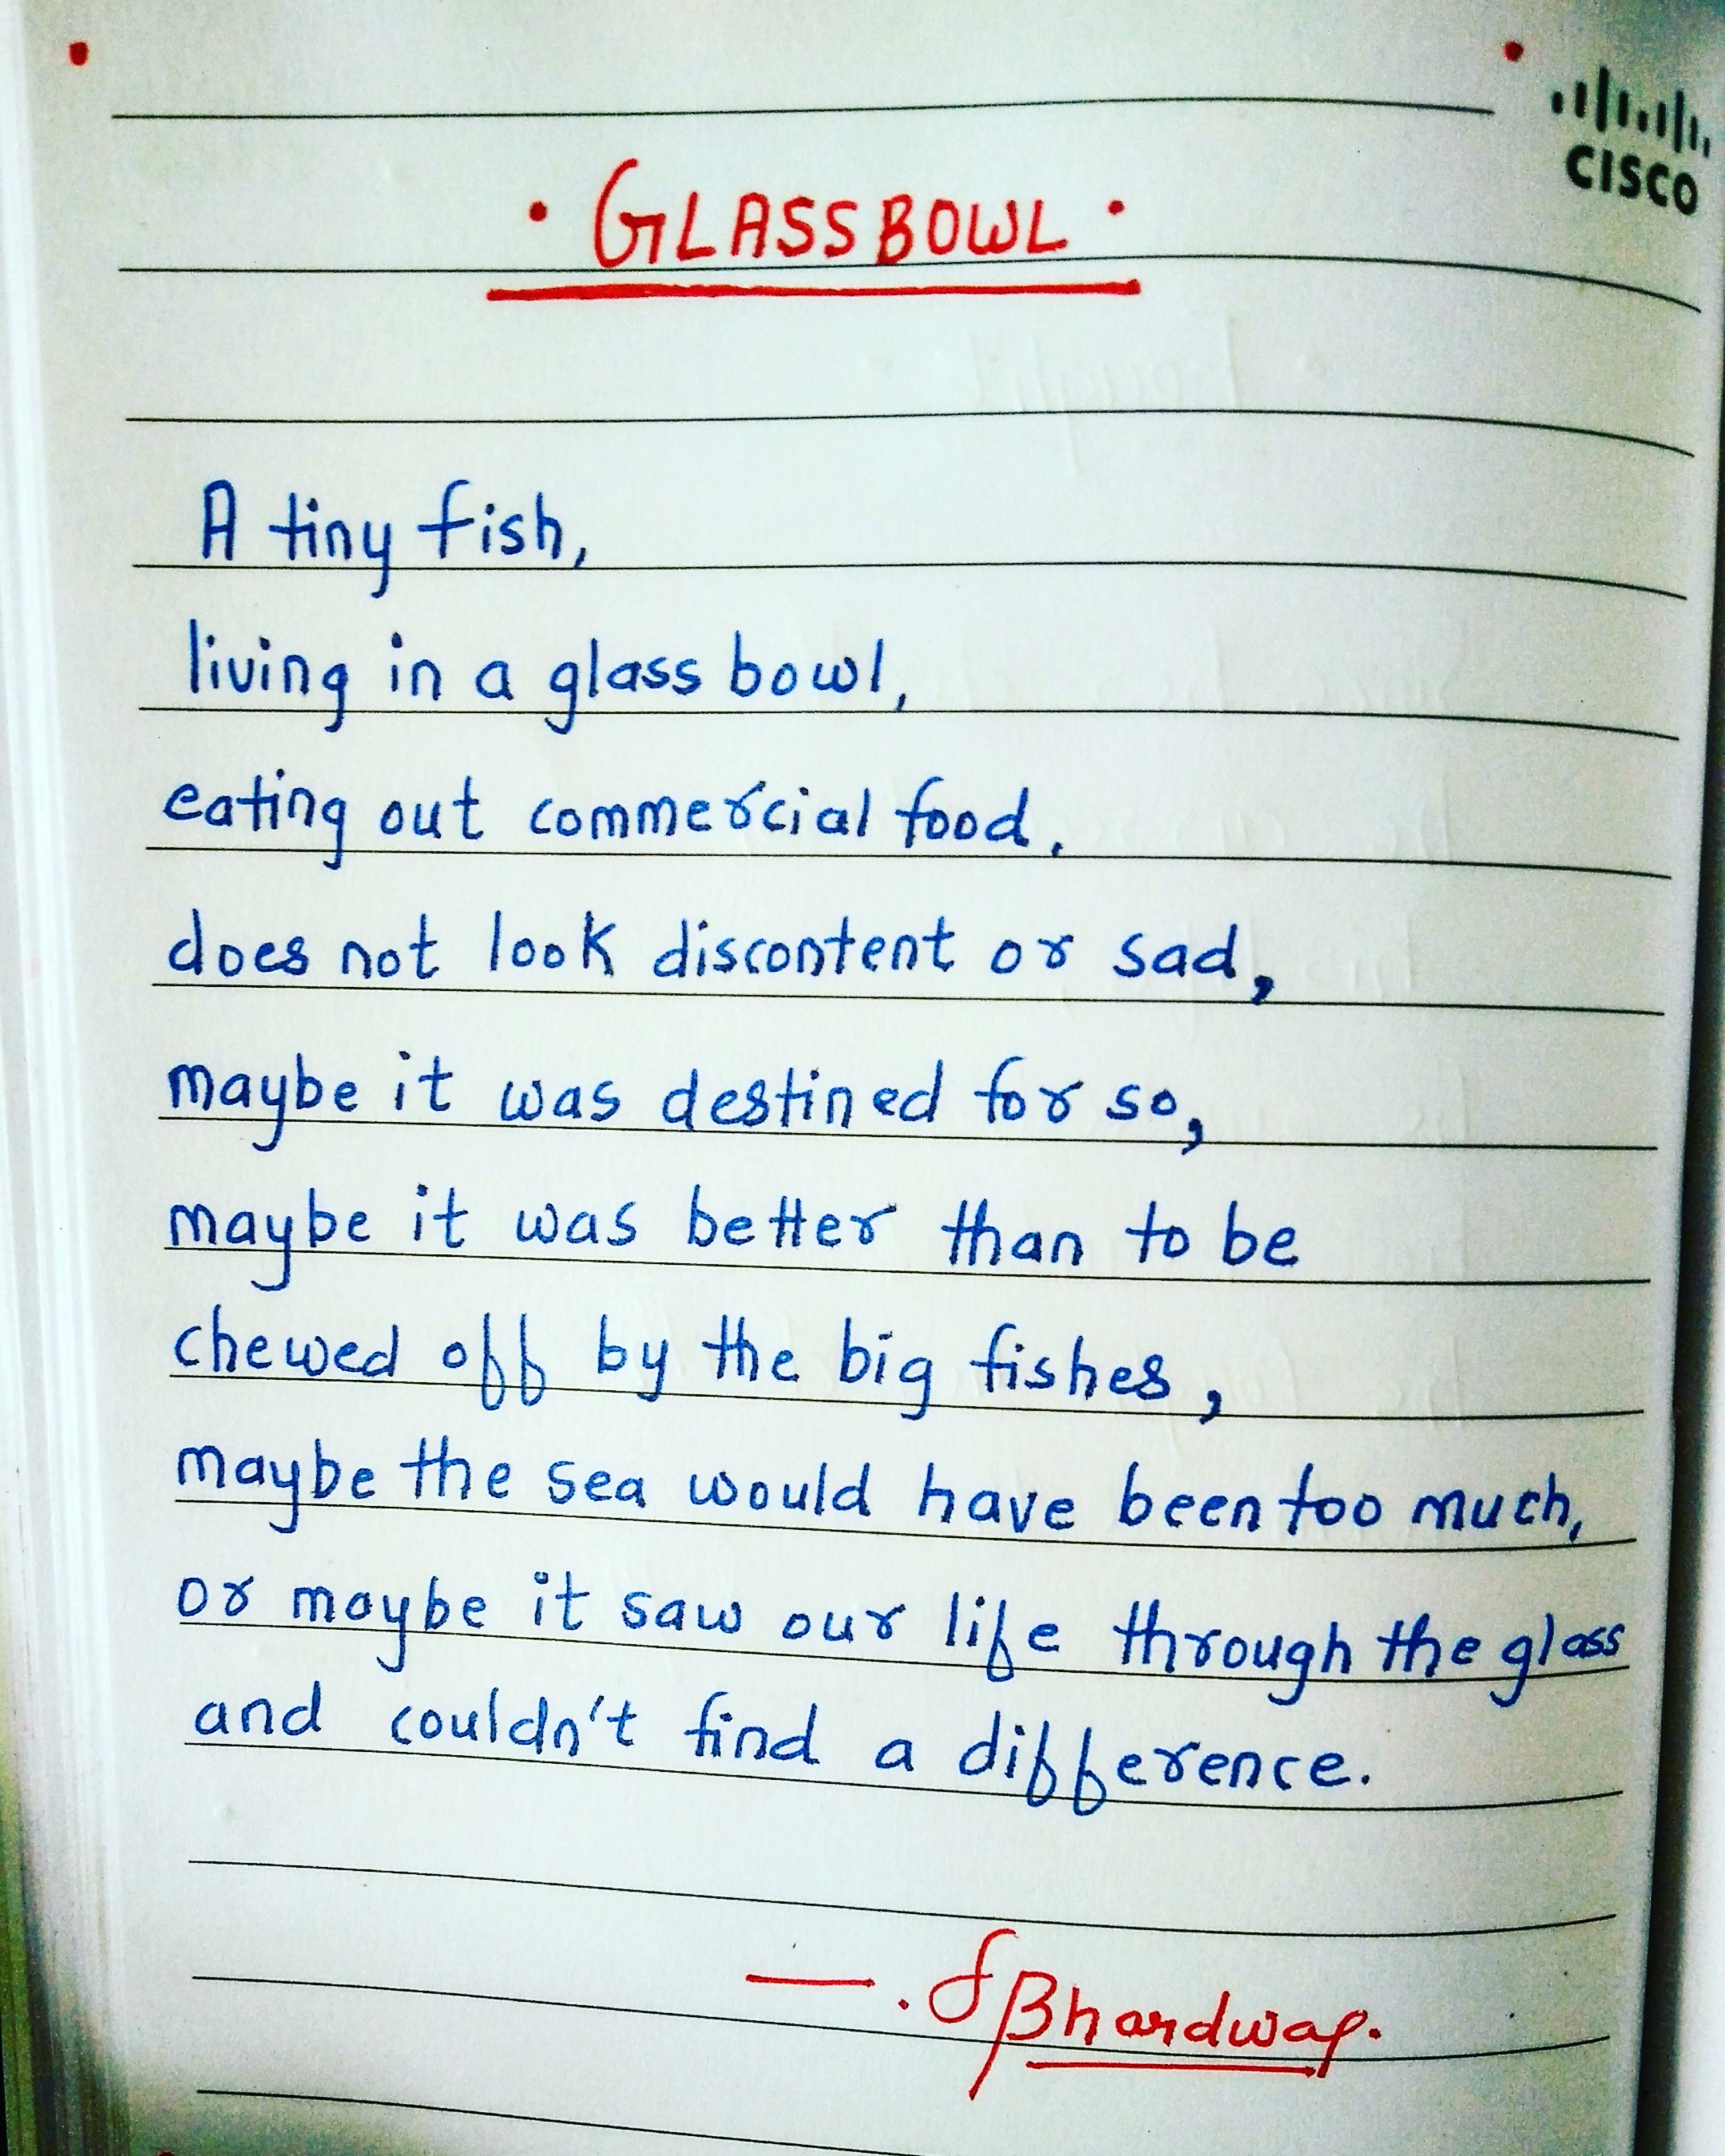 CISCO
• GLASS BOWL •
A tiny fish,
living in a glass bowl,
eating out commercial food,
does not look discontent or sad,
maybe it was destined for so,
maybe it was better than to be
chewed off by the big fishes,
maybe the sea would have been too much,
or maybe it saw our life through the glass
and couldn't find a difference.
—. SBhardwaj.